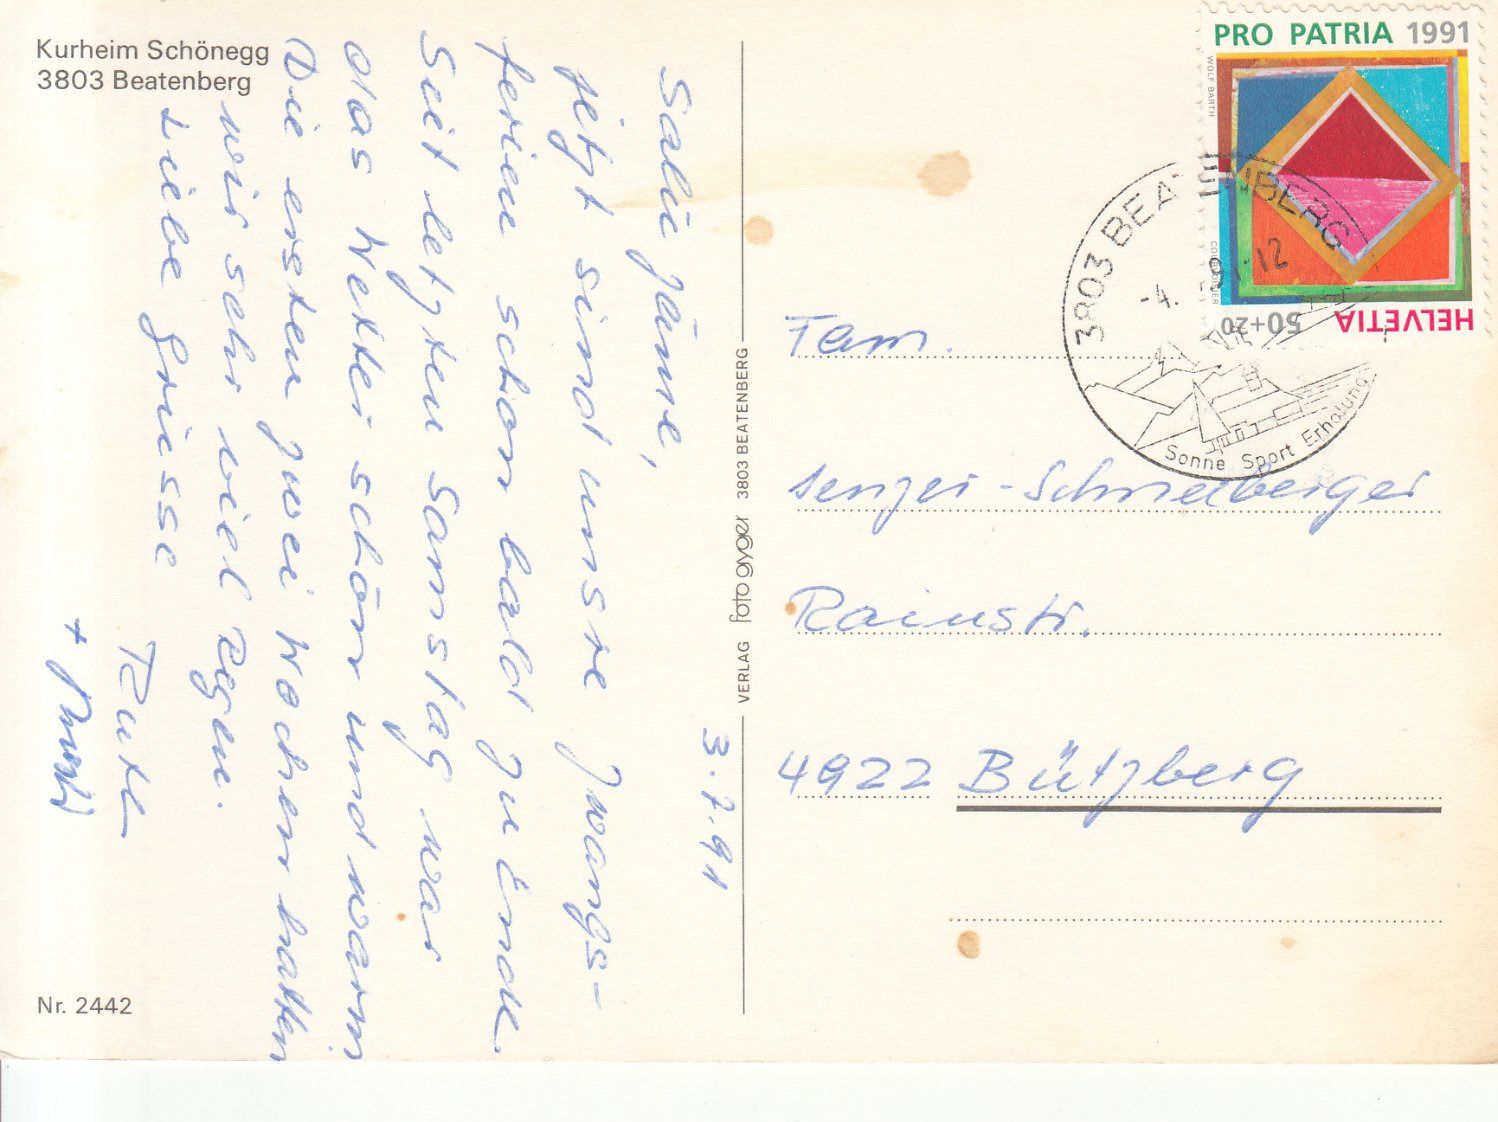 Kurheim Schönegg
3803 Beatenberg
3.7.91
Salü zäme,
jetzt sind unste Zwangs-
ferien schon bald zu Ende.
Seit letzten Samstag war
das Wetter schön und warm
Die ersten zwei Wochen hatten
wir sehr viel Regen.
Liebe Griesse
Ruth
+
Nr. 2442
VERLAG foto gyger 3803 BEATENBERG
PRO PATRIA 1991
WOLF BARTH
HELVETIA
50+20
3803 BEATENBERG
-4. -91-12
Sonne Sport Erholung
Fam.
Senzei - Schneeberger
Rainstr.
4922 Bützberg